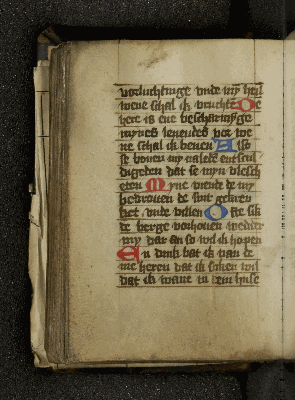 vorluchtinge vnde my heil
weme schal ik vruchten De
here is ene bescharmyge
mynes leuendes vor we
me schal ik beuen Also
se bouen my nalede entscul
digeden dat se myn vlesch
eten Myne viende de my
bedrouen de sint gekren
ket vnde vellen Ofte sik
de berge vorhouen wedder
my dar an so wil ik hopen
En dink bat ik van de
me heren dat ik soken wil
dat ik wane in dem huse